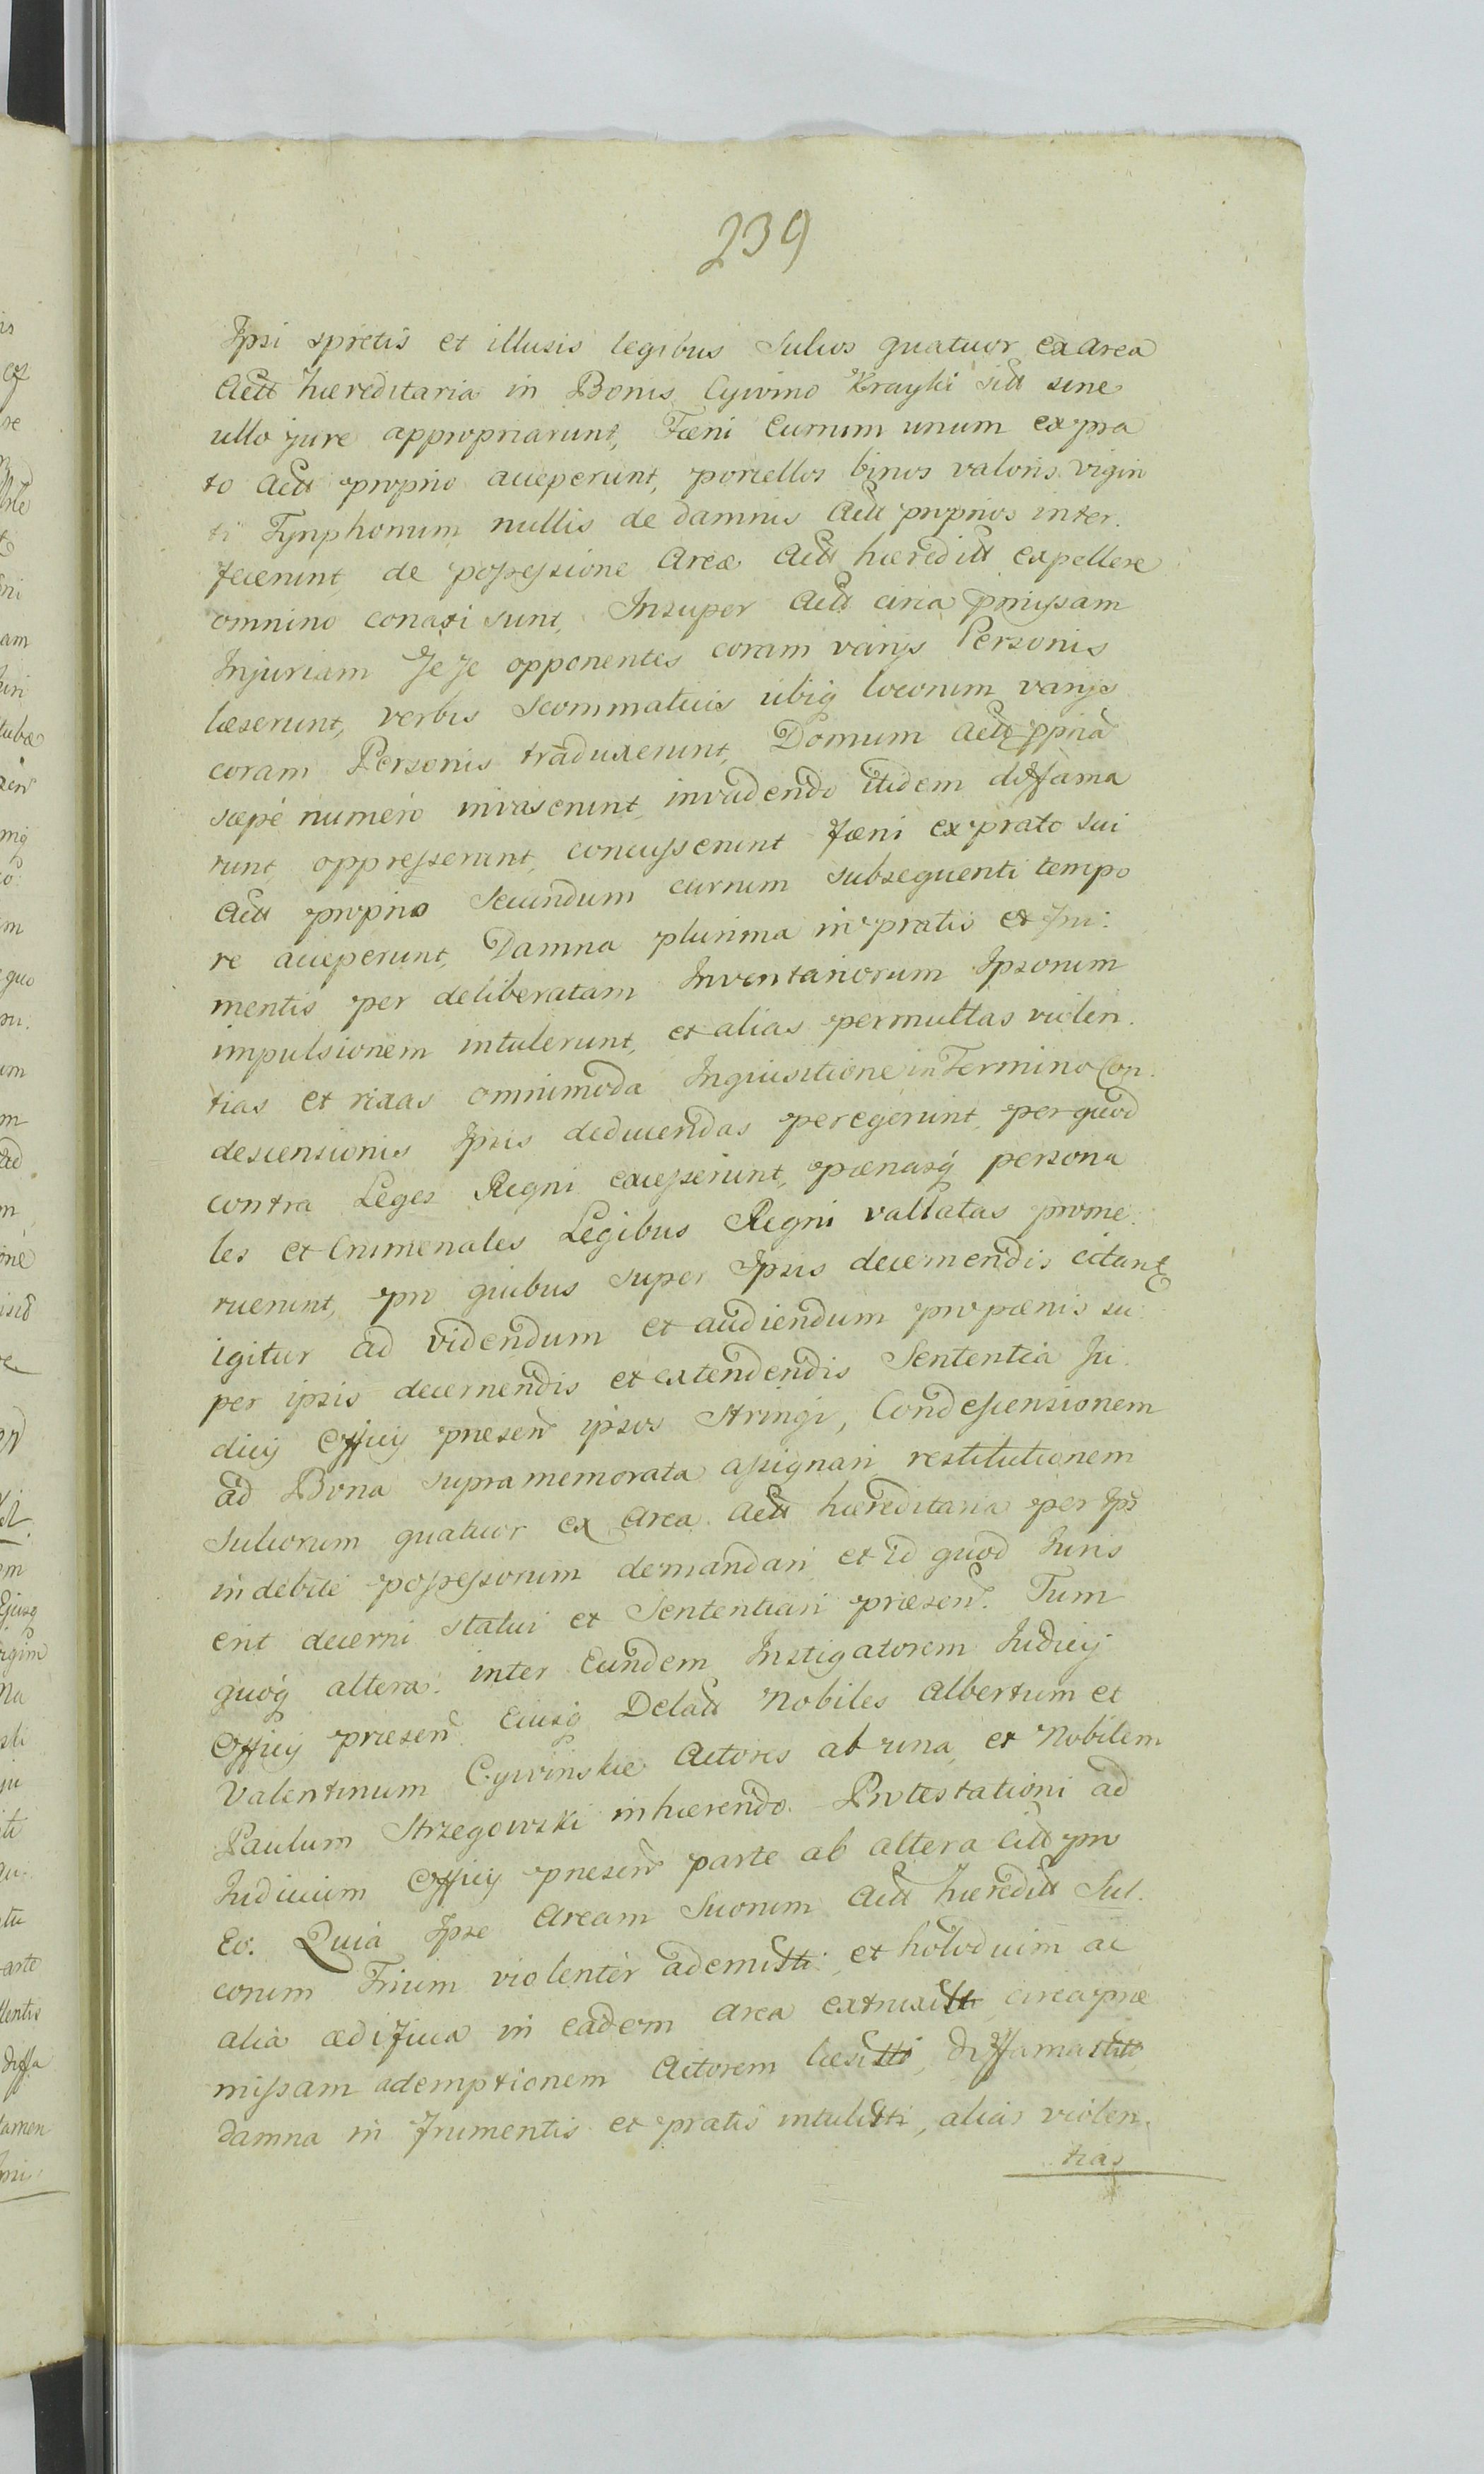 239
Ipsi spretis et illusis legibus Sulcos quatuor ex area
Actt hæreditaria in Bonis Cywino Krayki sitt sine
ullo jure appropriarunt, Fæni Currum unum ex pra
to Actt proprio acceperunt, porcellos binos valoris vigin
ti Tynphonum nullis de damnis Actt proprios inter.
fecerunt, de possessione Areæ Actt hæreditt expellere
omnino conati sunt, Insuper Actt circa præmissam
Injuriam se se opponentes coram varijs Personis
læserunt, verbis Scommaticis ubiq locorum varijs
coram Personis traduxerunt, Domum Actt ppria
sæpe numero invaserunt, invadendo itidem diffama
runt, oppresserunt, concusserunt fæni ex prato sui
Actt proprio Secundum currum subsequenti tempo
re acceperunt, Damna plurima in pratis et fru:
mentis per deliberatam Inventariorum Ipsorum
impulsionem intulerunt, et alias permultas violen.
tias et rixas omnimoda Inquisitione in Termino Con.
descensionis Ipsis deducendas peregerunt, per quod
contra Leges Regni excesserunt, pænasq persona
les et Crimenales Legibus Regni vallatas prome.
ruerunt, pro quibus super Ipsis decernendis citant
igitur ad videndum et audiendum pro pænis su
per ipsis decernendis et extendendis Sententia Ju.
dicij Officij præsen ipsos stringi, Condescensionem
ad Bona supra memorata assignari restitutionem
Sulcorum quatuor ex Area Actt hæreditaria per Ips
indebite possessorum demandari et id quod Juris
erit decerni statui et Sententiari præsen. Tum
quoq altera: inter Eundem Instigatorem Judicij
Officij præsen Eiusq Delatt Nobiles Albertum et
Valentinum Cywinskie Actores ab una, et Nobilem
Paulum Strzegowski inhærendo Protestationi ad
Judicium Officij præsen parte ab altera Citt pro
Eo. Quia Ipse Aream Suorum Actt hæreditt Sul.
corum Trium violenter ademisti: et holoduim ac
alia ædificia in eadem area extruxisti circa præ
missam ademptionem Actorem læsisti, diffamasti
damna in frumentis et pratis intulisti, alias violen.
tias